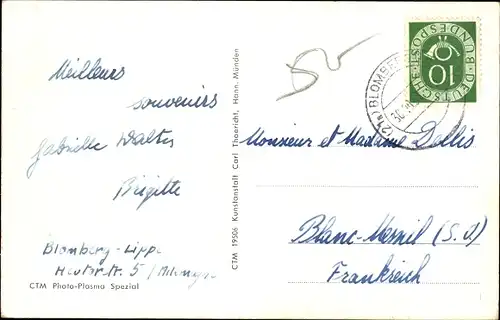 Meilleurs
souvenirs
Gabrielle Walter
Brigitte
Blomberg-Lippe
5 /
CTM Photo-Plasma Spezial
CTM 19506 Kunstanstalt Carl Thoericht, Hann. Münden
DEUTSCHE BUNDESPOST
10
BLOMBERG
Monsieur et Madame Dallis
Blanc-Mesnil (S. d)
Frankreich